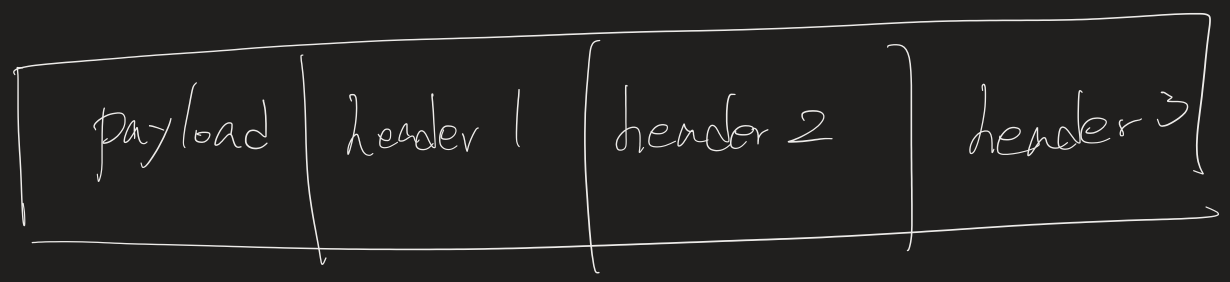 payload header 1 header 2 header 3